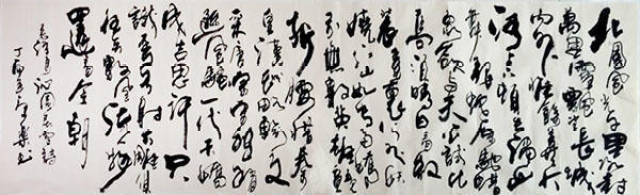 北国风光千里冰封
万里雪飘望长城
内外惟余莽莽大
河上下顿失滔滔山
舞银蛇原驰蜡
象欲与天公试比
高须晴日看红
装素裹分外妖
娆江山如此多娇
引无数英雄竞
折腰惜秦
皇汉武略输文
采唐宗宋祖稍
逊风骚一代天骄
成吉思汗只
识弯弓射大雕俱
往矣数风流人物
还看今朝
毛泽东沁园春雪词
丁酉年